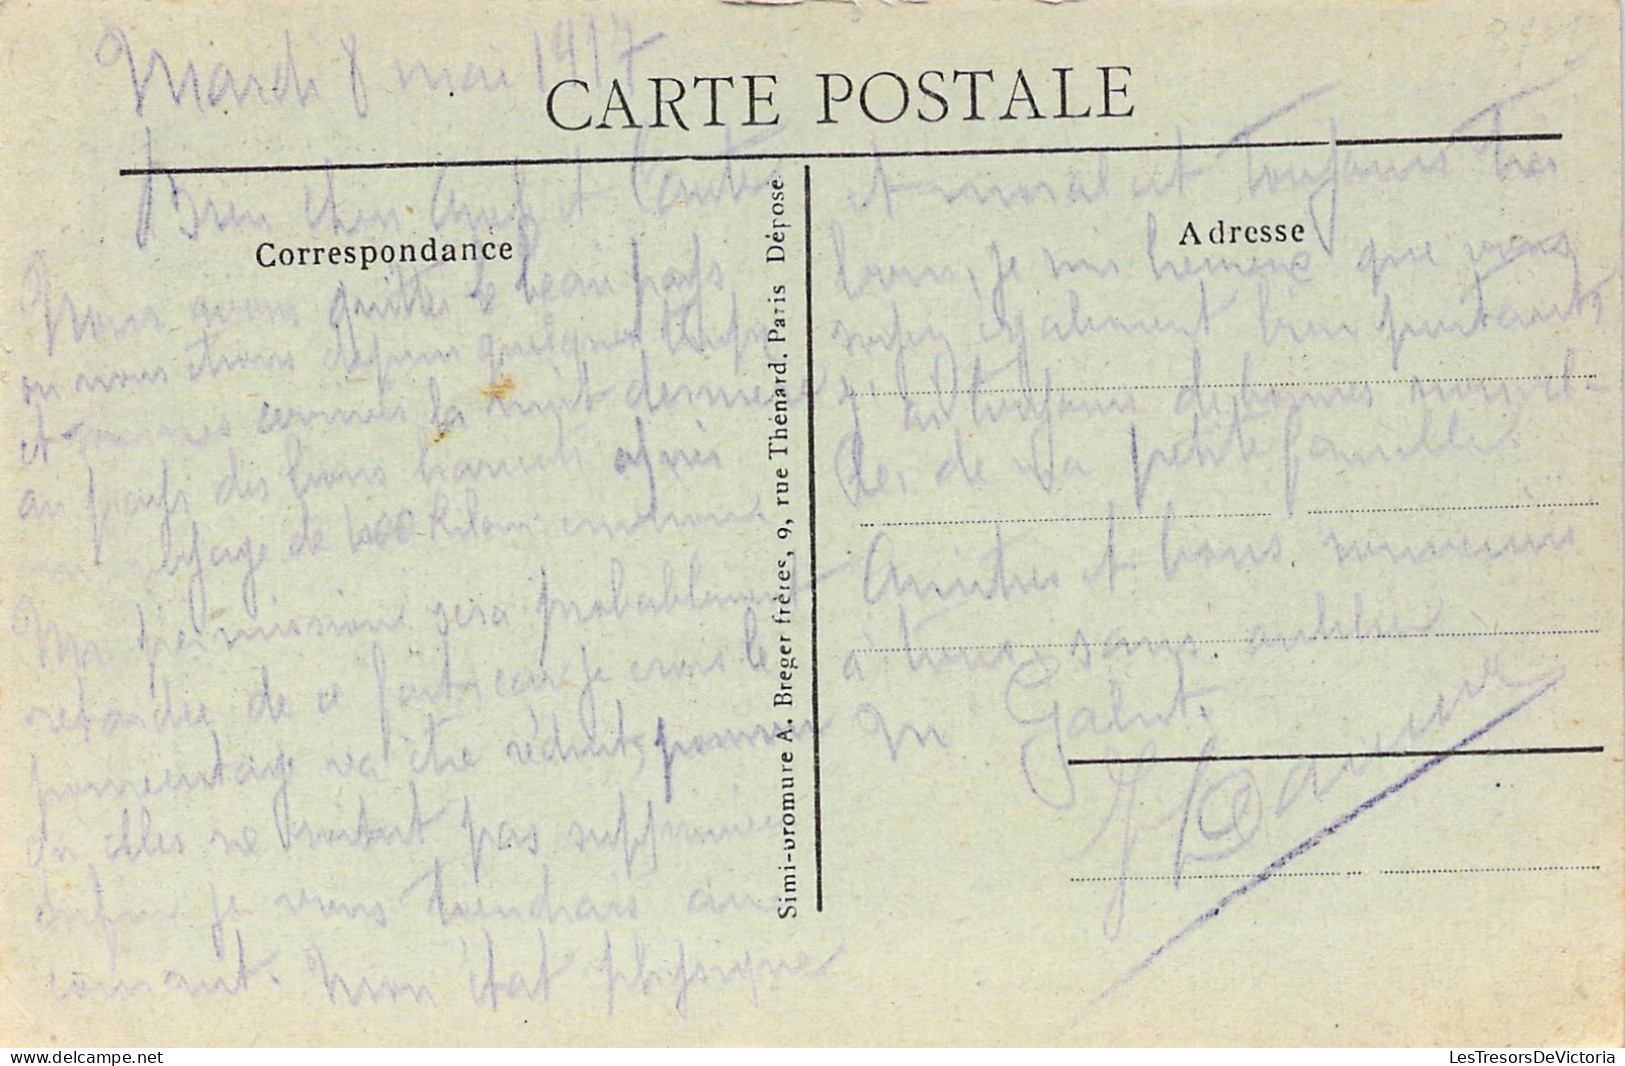 Mardi 8 mai 1917
CARTE POSTALE
Bien cher et
Correspondance
Nous avons quittés le beau pays
ou nous étions depuis quelques temps
et sommes la nuit dernière
au pays des bons après
un voyage de kilom environ
Ma permission sera probablement
retardée de ce fait, car je crois le
pourcentage va être réduit,
ou elles ne soient pas supprimées
enfin je vous tiendrais au
courant. Mon état physique
Simi-bromure A. Breger frères, 9, rue Thénard. Paris Déposé
et moral est toujours très
Adresse
bons, je suis heureux que vous
soyez également bien portants,
j'ai toujours de bonnes nouvel-
les de ma petite famille.
Amitiés et bons souvenirs
à tous, sans oublier
M
LesTresorsDeVictoria